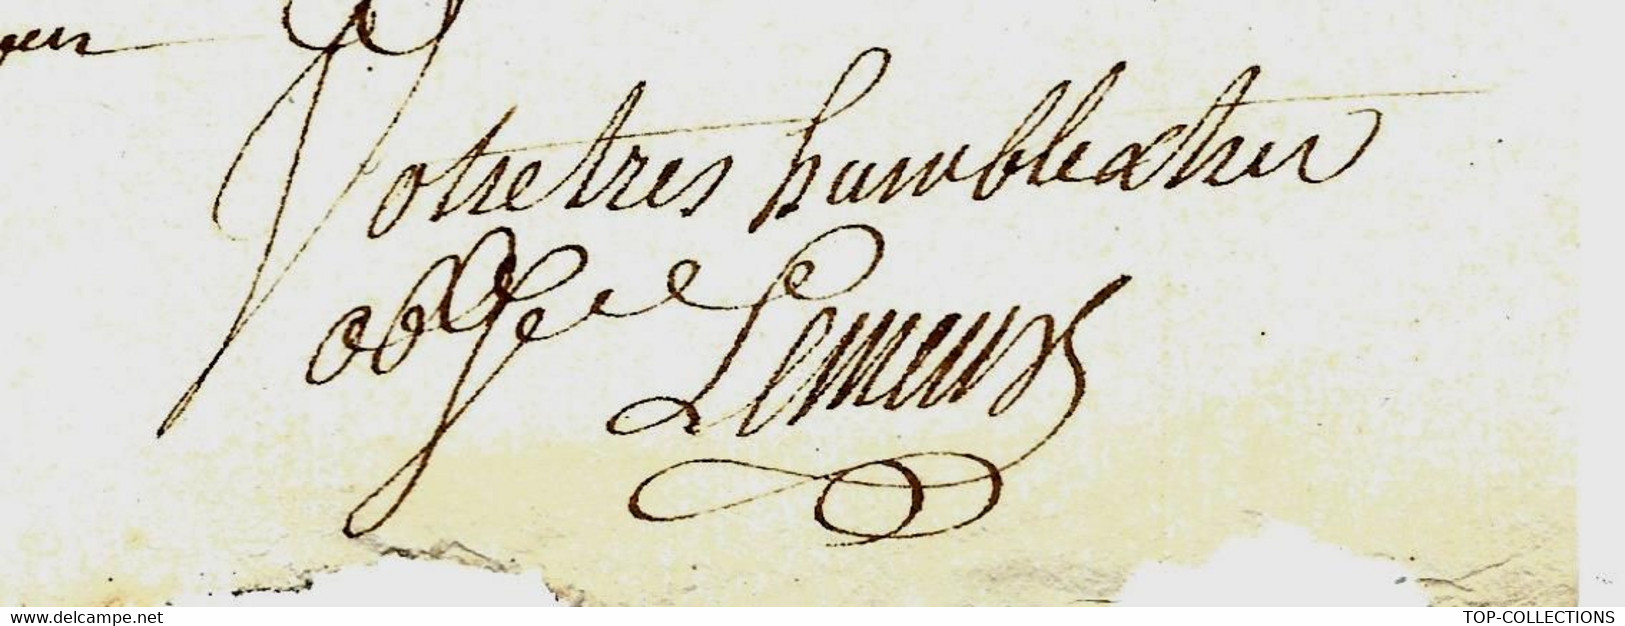 Votre tres humble & tres
obge
Lemeux
delcampe.net
TOP-COLLECTIONS